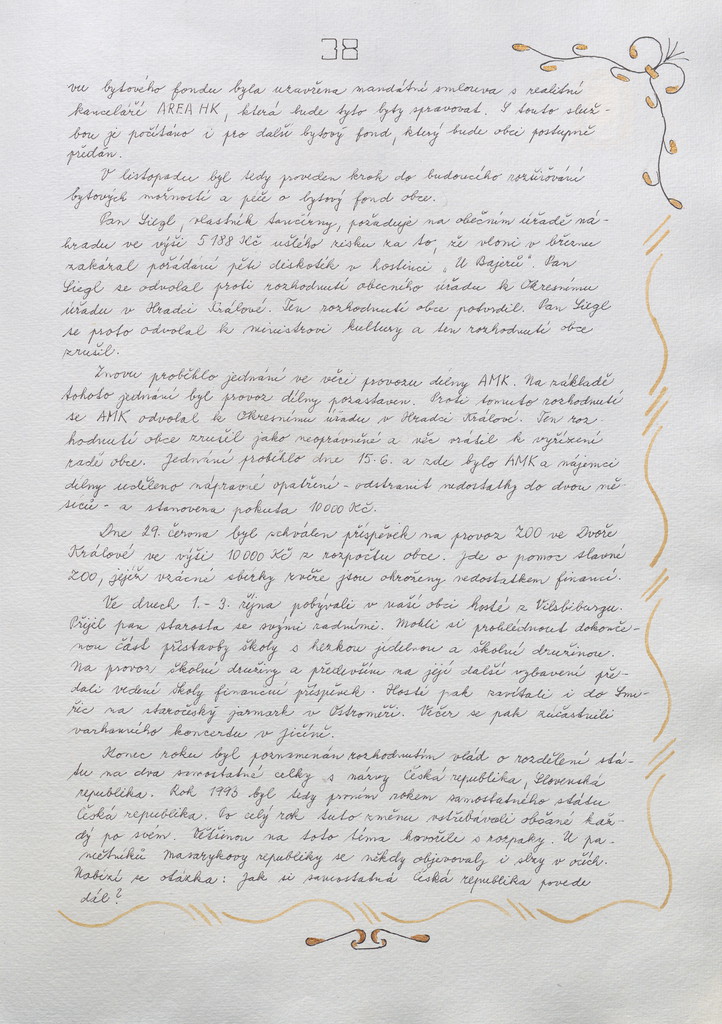 38
vu bytového fondu byla uzavřena mandátní smlouva s realitní
kanceláří AREA HK, která bude tyto byty spravovat. S touto služ-
bou je počítáno i pro další bytový fond, který bude obci postupně
předán.
V listopadu byl tedy proveden krok do budoucího rozšiřování
bytových možností a péče o bytový fond obce.
Pan Siegl, vlastník tančírny, požaduje na obecním úřadě ná-
hradu ve výši 5 188 Kč ušlého zisku za to, že vloni v březnu
zakázal pořádání pěti diskoték v hostinci „U Bajerů". Pan
Siegl se odvolal proti rozhodnutí obecního úřadu k Okresnímu
úřadu v Hradci Králové. Ten rozhodnutí obce potvrdil. Pan Siegl
se proto odvolal k ministrovi kultury a ten rozhodnutí obce
zrušil.
Znovu proběhlo jednání ve věci provozu dílny AMK. Na základě
tohoto jednání byl provoz dílny pozastaven. Proti tomuto rozhodnutí
se AMK odvolal k Okresnímu úřadu v Hradci Králové. Ten roz-
hodnutí obce zrušil jako neoprávněné a věc vrátil k vyřízení
radě obce. Jednání proběhlo dne 15. 6. a zde bylo AMK a nájemci
dílny uděleno nápravné opatření - odstranit nedostatky do dvou mě-
síců - a stanovena pokuta 10 000 Kč.
Dne 29. června byl schválen příspěvek na provoz ZOO ve Dvoře
Králové ve výši 10 000 Kč z rozpočtu obce. Jde o pomoc slavné
ZOO, jejíž vzácné sbírky zvěře jsou ohroženy nedostatkem financí.
Ve dnech 1. - 3. října pobývali v naší obci hosté z Vilsbiburgu.
Přijel pan starosta se svými radními. Mohli si prohlédnout dokonče-
nou část přístavby školy s hezkou jídelnou a školní družinou.
Na provoz školní družiny a především na její další vybavení pře-
dali vedení školy finanční příspěvek. Hosté pak zavítali i do Smi-
řic na staročeský jarmark v Ostroměři. Večer se pak zúčastnili
varhanního koncertu v Jičíně.
Konec roku byl poznamenán rozhodnutím vlád o rozdělení stá-
tu na dva samostatné celky s názvy Česká republika, Slovenská
republika. Rok 1993 byl tedy prvním rokem samostatného státu
Česká republika. Po celý rok tuto změnu vstřebávali občané kaž-
dý po svém. Většinou na toto téma hovořili s rozpaky. U pa-
mětníků Masarykovy republiky se někdy objevovaly i slzy v očích.
Nabízí se otázka: Jak si samostatná Česká republika povede
dál?